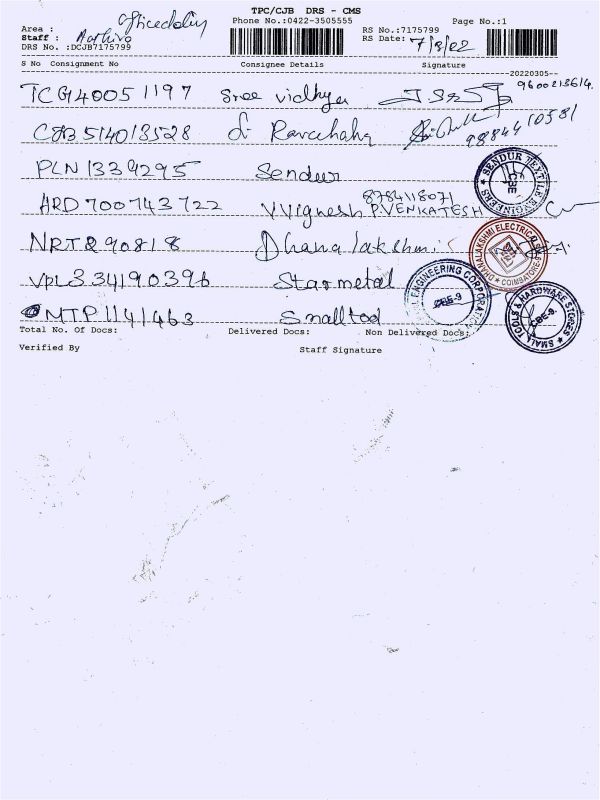 TPC/CJB DRS - CMS
Phone No.:0422-3505555
Page No.:1
Area :
Staff :
DRS No. :DCJB7175799
RS No.:7175799
RS Date: 7/3/22
S No Consignment No Consignee Details Signature
20220305
TCG40051197 Sree vidhya 9600213614
CJB514013528 Sri 9884410581
PLN1339295 Sendur
SENDUR TEXTILE ENGINEERS CBE
8784118071
ARD700743722 V Vignesh P.VENKATESH
NRT290818 Dhanalakshmi
DHANALAKSHMI ELECTRICALS COIMBATORE
VPL334190396 Starmetal
ENGINEERING CORPORATION CBE-9
MTP1141463 Smalltod
SMALL TOOLS & HARDWARE STORES CBE-9.
Total No. Of Docs: Delivered Docs: Non Delivered Docs:
Verified By Staff Signature